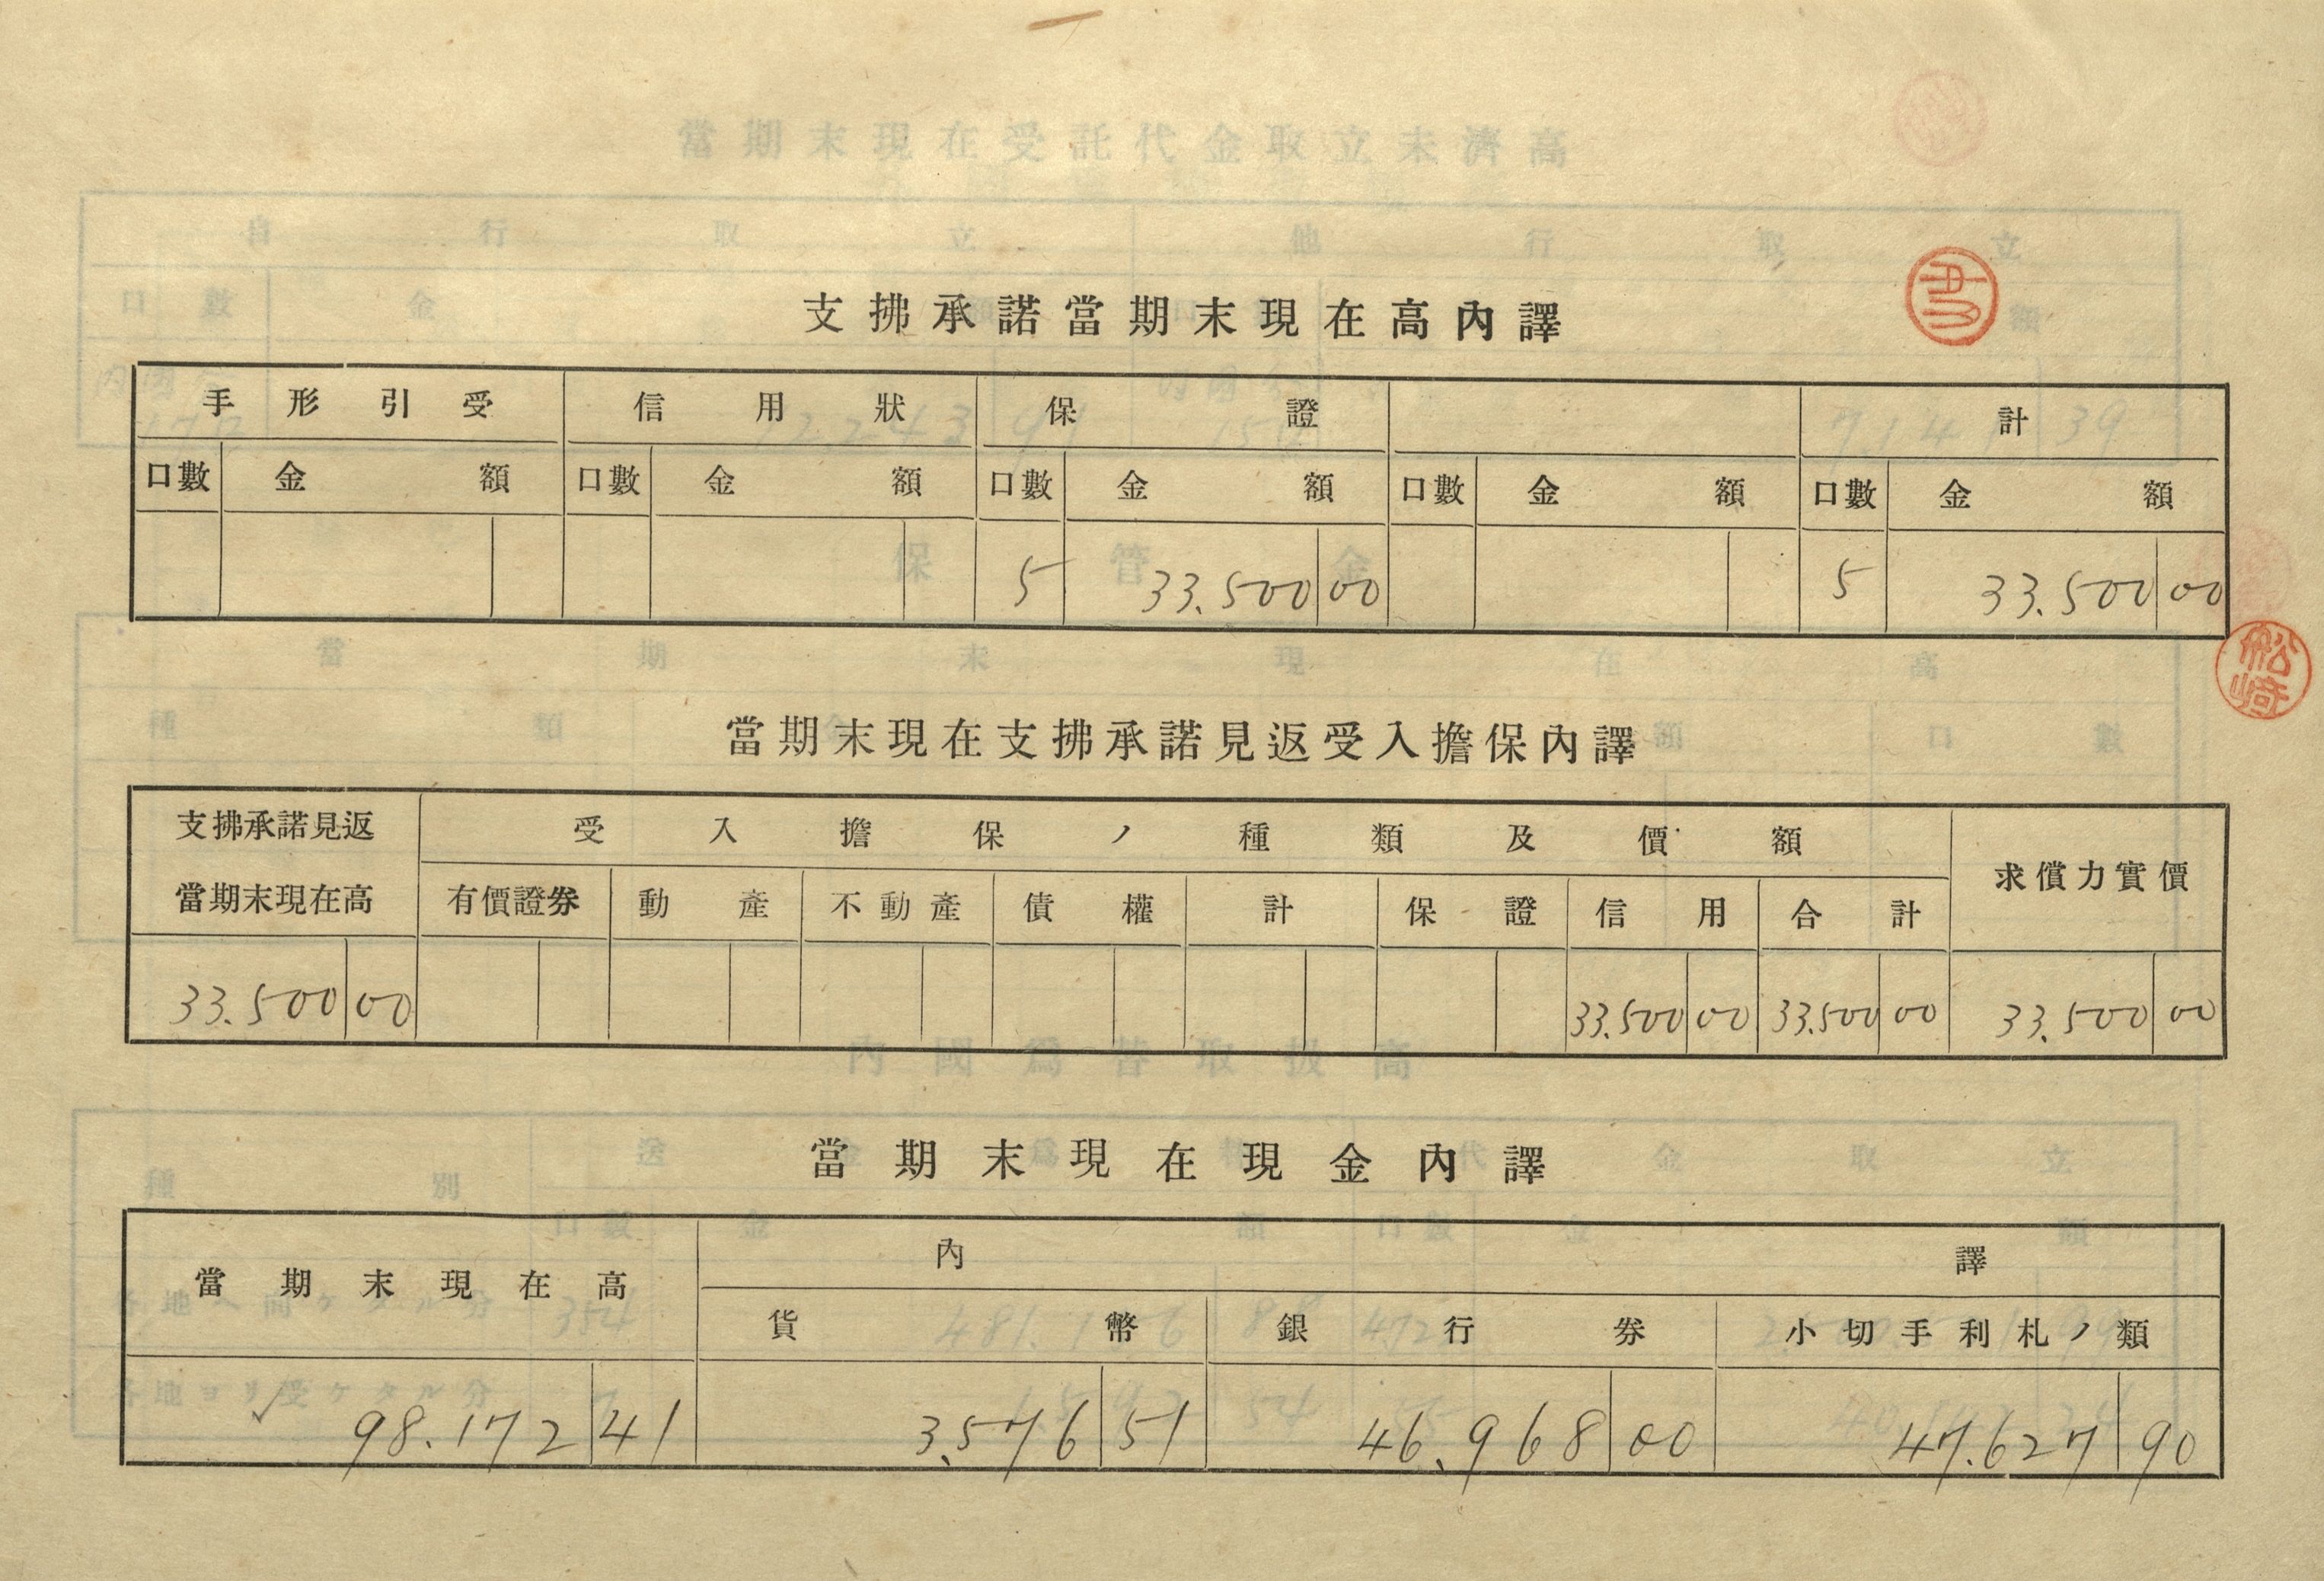 支拂承諾當期末現在高內譯
手形引受 信用狀 保證 計
口數 金額 口數 金額 口數 金額 口數 金額 口數 金額
5 33.500 00 5 33.500 00
松崎
當期末現在支拂承諾見返受入擔保內譯
支拂承諾見返 受入擔保ノ種類及價額 求償力實價
當期末現在高 有價證券 動產 不動產 債權 計 保證 信用 合計
33.500 00 33.500 00 33.500 00 33.500 00
當期末現在現金內譯
當期末現在高 內譯
貨幣 銀行券 小切手利札ノ類
98.172 41 3.576 51 46.968 00 47.627 90